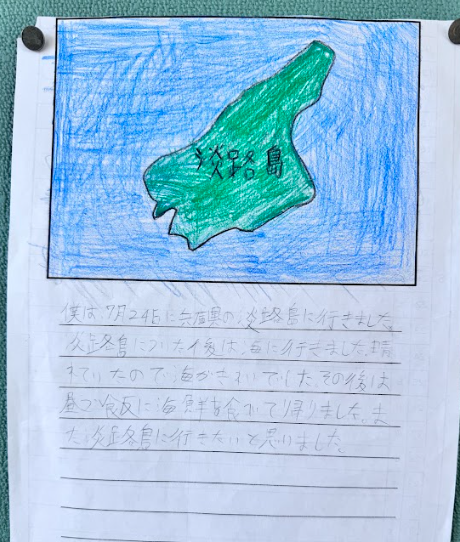 淡路島
僕は、7月24日に兵庫県の淡路島に行きました。
淡路島についた後は、海に行きました。晴
れていたので海がきれいでした。その後は
昼ご飯に海鮮を食べて帰りました。ま
た淡路島に行きたいと思いました。